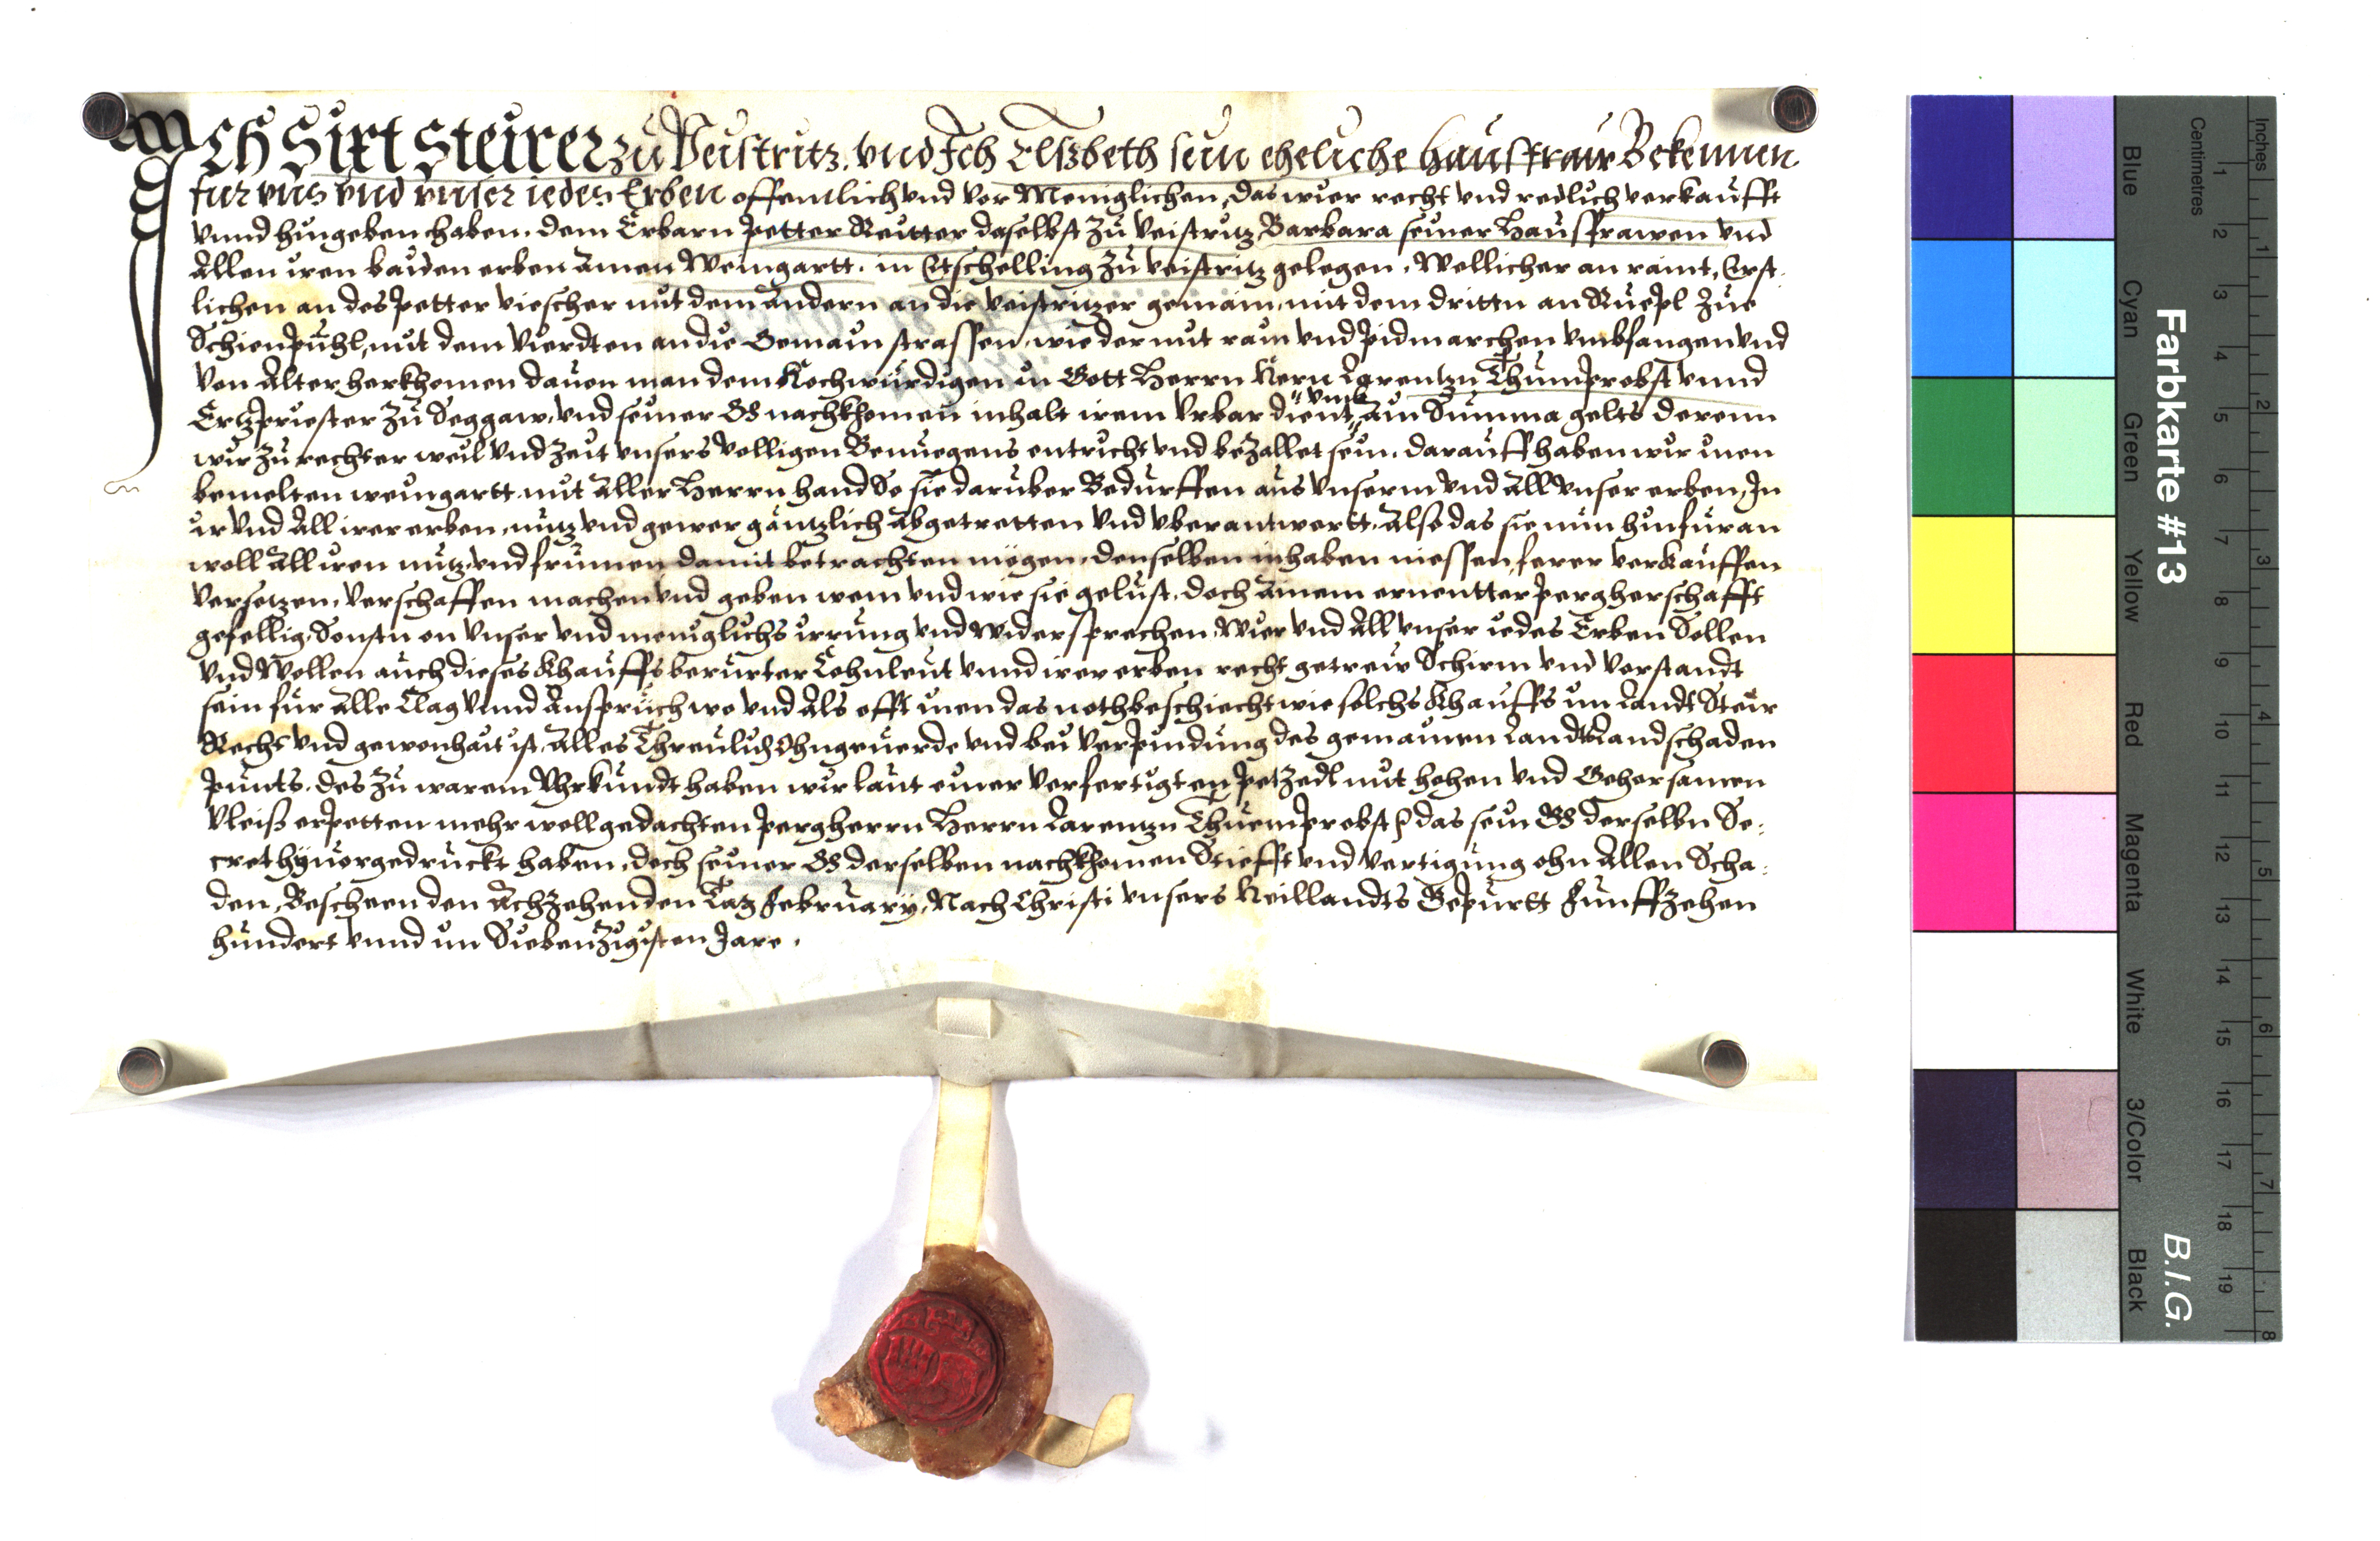 Ich Sixt Steirer zu Veistritz. vnd Ich Elszbeth sein eheliche haussfraw Bekennen
fur vns vnd vnser iedes Erben offenntlich vnd vor Meniglichen, das wier recht vnd redlich verkaufft
vnnd hingeben haben. dem Erbarn Petter Reutter daselbst zu Veistritz, Barbara seiner Haussfrawen vnd
Allen iren baiden erben Ainen Weingartt. in Etschelling zu veistritz gelegen, Wellicher an raint, Erst-
lichen an des Petter viescher mit dem Andern an die veistritzer gemain, mit dem drittn an Ruepl zue
Schienpühl, mit dem Vierdten an die Gemain strassen, wie der mit rain vnd Pidmarchen vmbfangen vnd
Von Alter herkhomen dauon man dem Hochwürdigen in Gott Herrn Hern Larentzn Thumprobst vnnd
Ertzpriester zu Seggaw, vnd seiner GG nachkhomen inhalt irem Vrbar dient, vmb ain Summa gelts derenn
wir zu rechter weil vnd zeit vnsers volligen Benuegens entricht vnd bezallet sein. darauff haben wir inen
bemelten weingartt mit Aller Herrn hand So sie daruber Bedürffen aus vnserm vnd All vnser erben, In
ir vnd All irer erben, nutz vnd gewer gäntzlich Abgetretten vnd vberantwortt, Also das sie nun hinfüran
woll All iren nutz vnd frumen damit betrachten mügen, denselben inhaben niessen ferer verkauffen
versetzen, verschaffen machen vnd geben wem vnd wie sie gelust, doch Ainem ernentter Pergherschafft
gefellig, Sonstn on vnser vnd meniglichs irrung vnd Widersprechen, Wier vnd All vnser iedes Erben Sollen
vnd Wollen auch dieses Khauffs berürter Lehnleut vnnd irer erben recht getreir Schirm vnd Vorstandt
sein für Alle Clag vnnd Anspruch wo vnd Als offt inen das noth beschiecht wie solchs Khauffs im Landt Steir
Recht vnd gewonhait ist, Alles Threulich Ohngeuerde vnd bei Verpindung des gemainen Landts Landschaden
Punts. des zu warem Vhrkundt haben wir laut einer verfertigten Petzedl mit hohen vnd Gehorsamen
Vleiß erpetten mehr wollgedachten Pergherrn Herrn Larentzn Thuemprobst das sein GG derselbn Se-
cret hyuorgedruckt haben, doch seiner GG derselben nachkhomen Stiefft vnd vertigung ohn Allen Scha-
den, Bescheen den Achzehenden Tag February, Nach Christi vnsers Heillandts Gepurtt Funffzehen
hundert vnnd im Siebenzigisten Jare.
Farbkarte #13
B.I.G.
Inches
Centimetres
1 2 3 4 5 6 7 8 9 10 11 12 13 14 15 16 17 18 19
1 2 3 4 5 6 7 8
Blue
Cyan
Green
Yellow
Red
Magenta
White
3/Color
Black